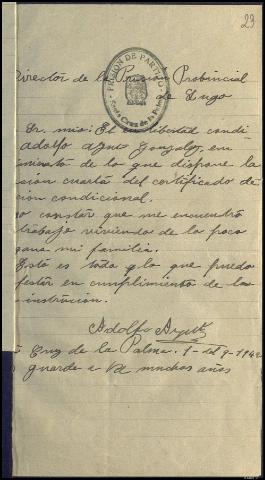 23
PRISION DE PARTIDO
Santa Cruz de la Palma
Director de la Prisión Provincial
de Lugo
Sr. mio: El en libertad condi
Adolfo Agut Gonzalez, en
de lo que dispone la
sión cuarta del certificado de
cion condicional.
constar que me encuentro
trabajo viviendo de lo poco
gana mi familia.
Esta es todo q lo que puedo
festar en cumplimiento de la
instrucion.
Adolfo Agut
Cruz de la Palma. 1- del 9-194
guarde a Vd muchos años